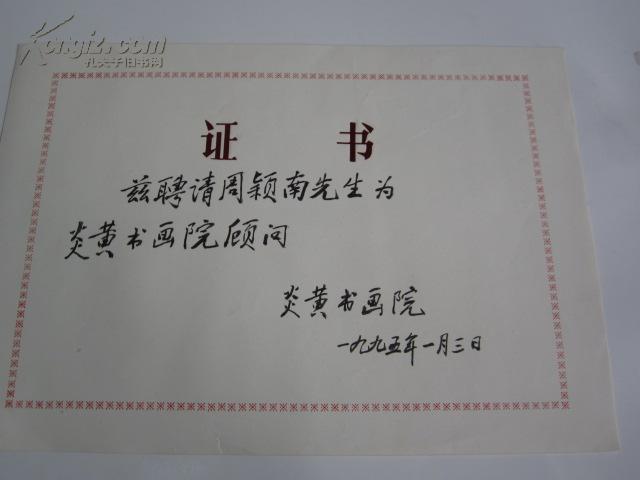 Kongfz.com
孔夫子旧书网
证书
兹聘请周颖南先生为
炎黄书画院顾问
炎黄书画院
一九九五年一月三日